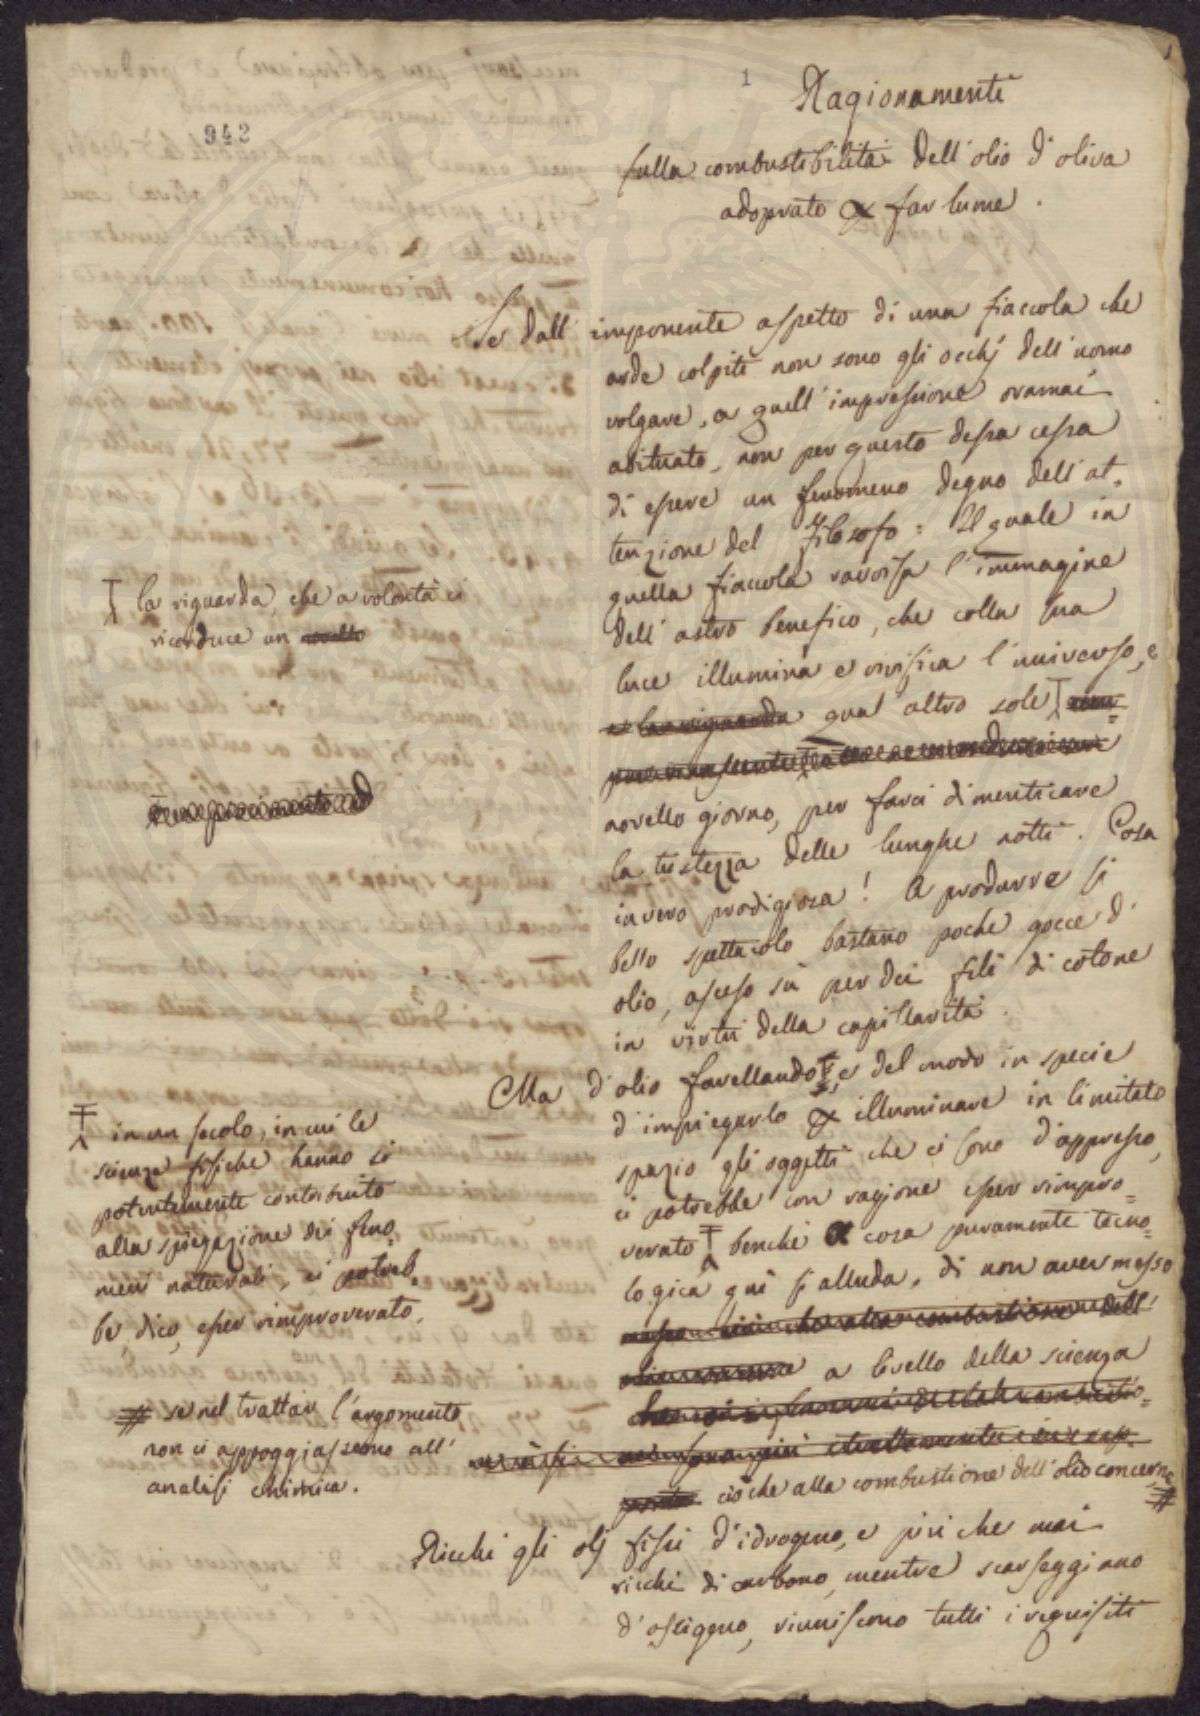 1
942
Ragionamenti
sulla combustibilità dell'olio d'oliva
adoprato per far lume.
Se dall' imponente aspetto di una fiaccola che
arde colpiti non sono gli occhj dell'uomo
volgare, a quell'impressione oramai
abituato, non per questo dessa cessa
di essere un fenomeno degno dell'at=
tenzione del Filosofo: Il quale in
quella fiaccola ravvisa l'immagine
dell'astro benefico, che colla sua
luce illumina e vivifica l'universo, e
e la riguarda qual altro sole
novello giorno, per farci dimenticare
la tristezza delle lunghe notti. Cosa
invero prodigiosa! A produrre si
bello spettacolo bastano poche gocce d'
olio, asceso sù per dei fili di cotone
in virtù della capillarità.
Ma d'olio favellando, e del modo in specie
d'impiegarlo per illuminare in limitato
spazio gli oggetti che ci sono d'appresso,
ci potrebbe con ragione esser rimpro=
verato benchè a cosa puramente tecno=
logica quì si alluda, di non aver messo
a livello della scienza
ciò che alla combustione dell'olio concerne
Ricchi gli olj fissi d'idrogeno, e più che mai
ricchi di carbono, mentre scarseggiano
d'ossigeno, riuniscono tutti i requisiti
la riguarda, che a volontà ci
riconduce un novello
in un secolo, in cui le
scienze fisiche hanno sì
potentemente contribuito
alla spiegazione dei feno=
meni naturali, ci potreb=
be, dico, esser rimproverato,
# se nel trattar l'argomento
non ci appoggiassemo all'
analisi chimica.